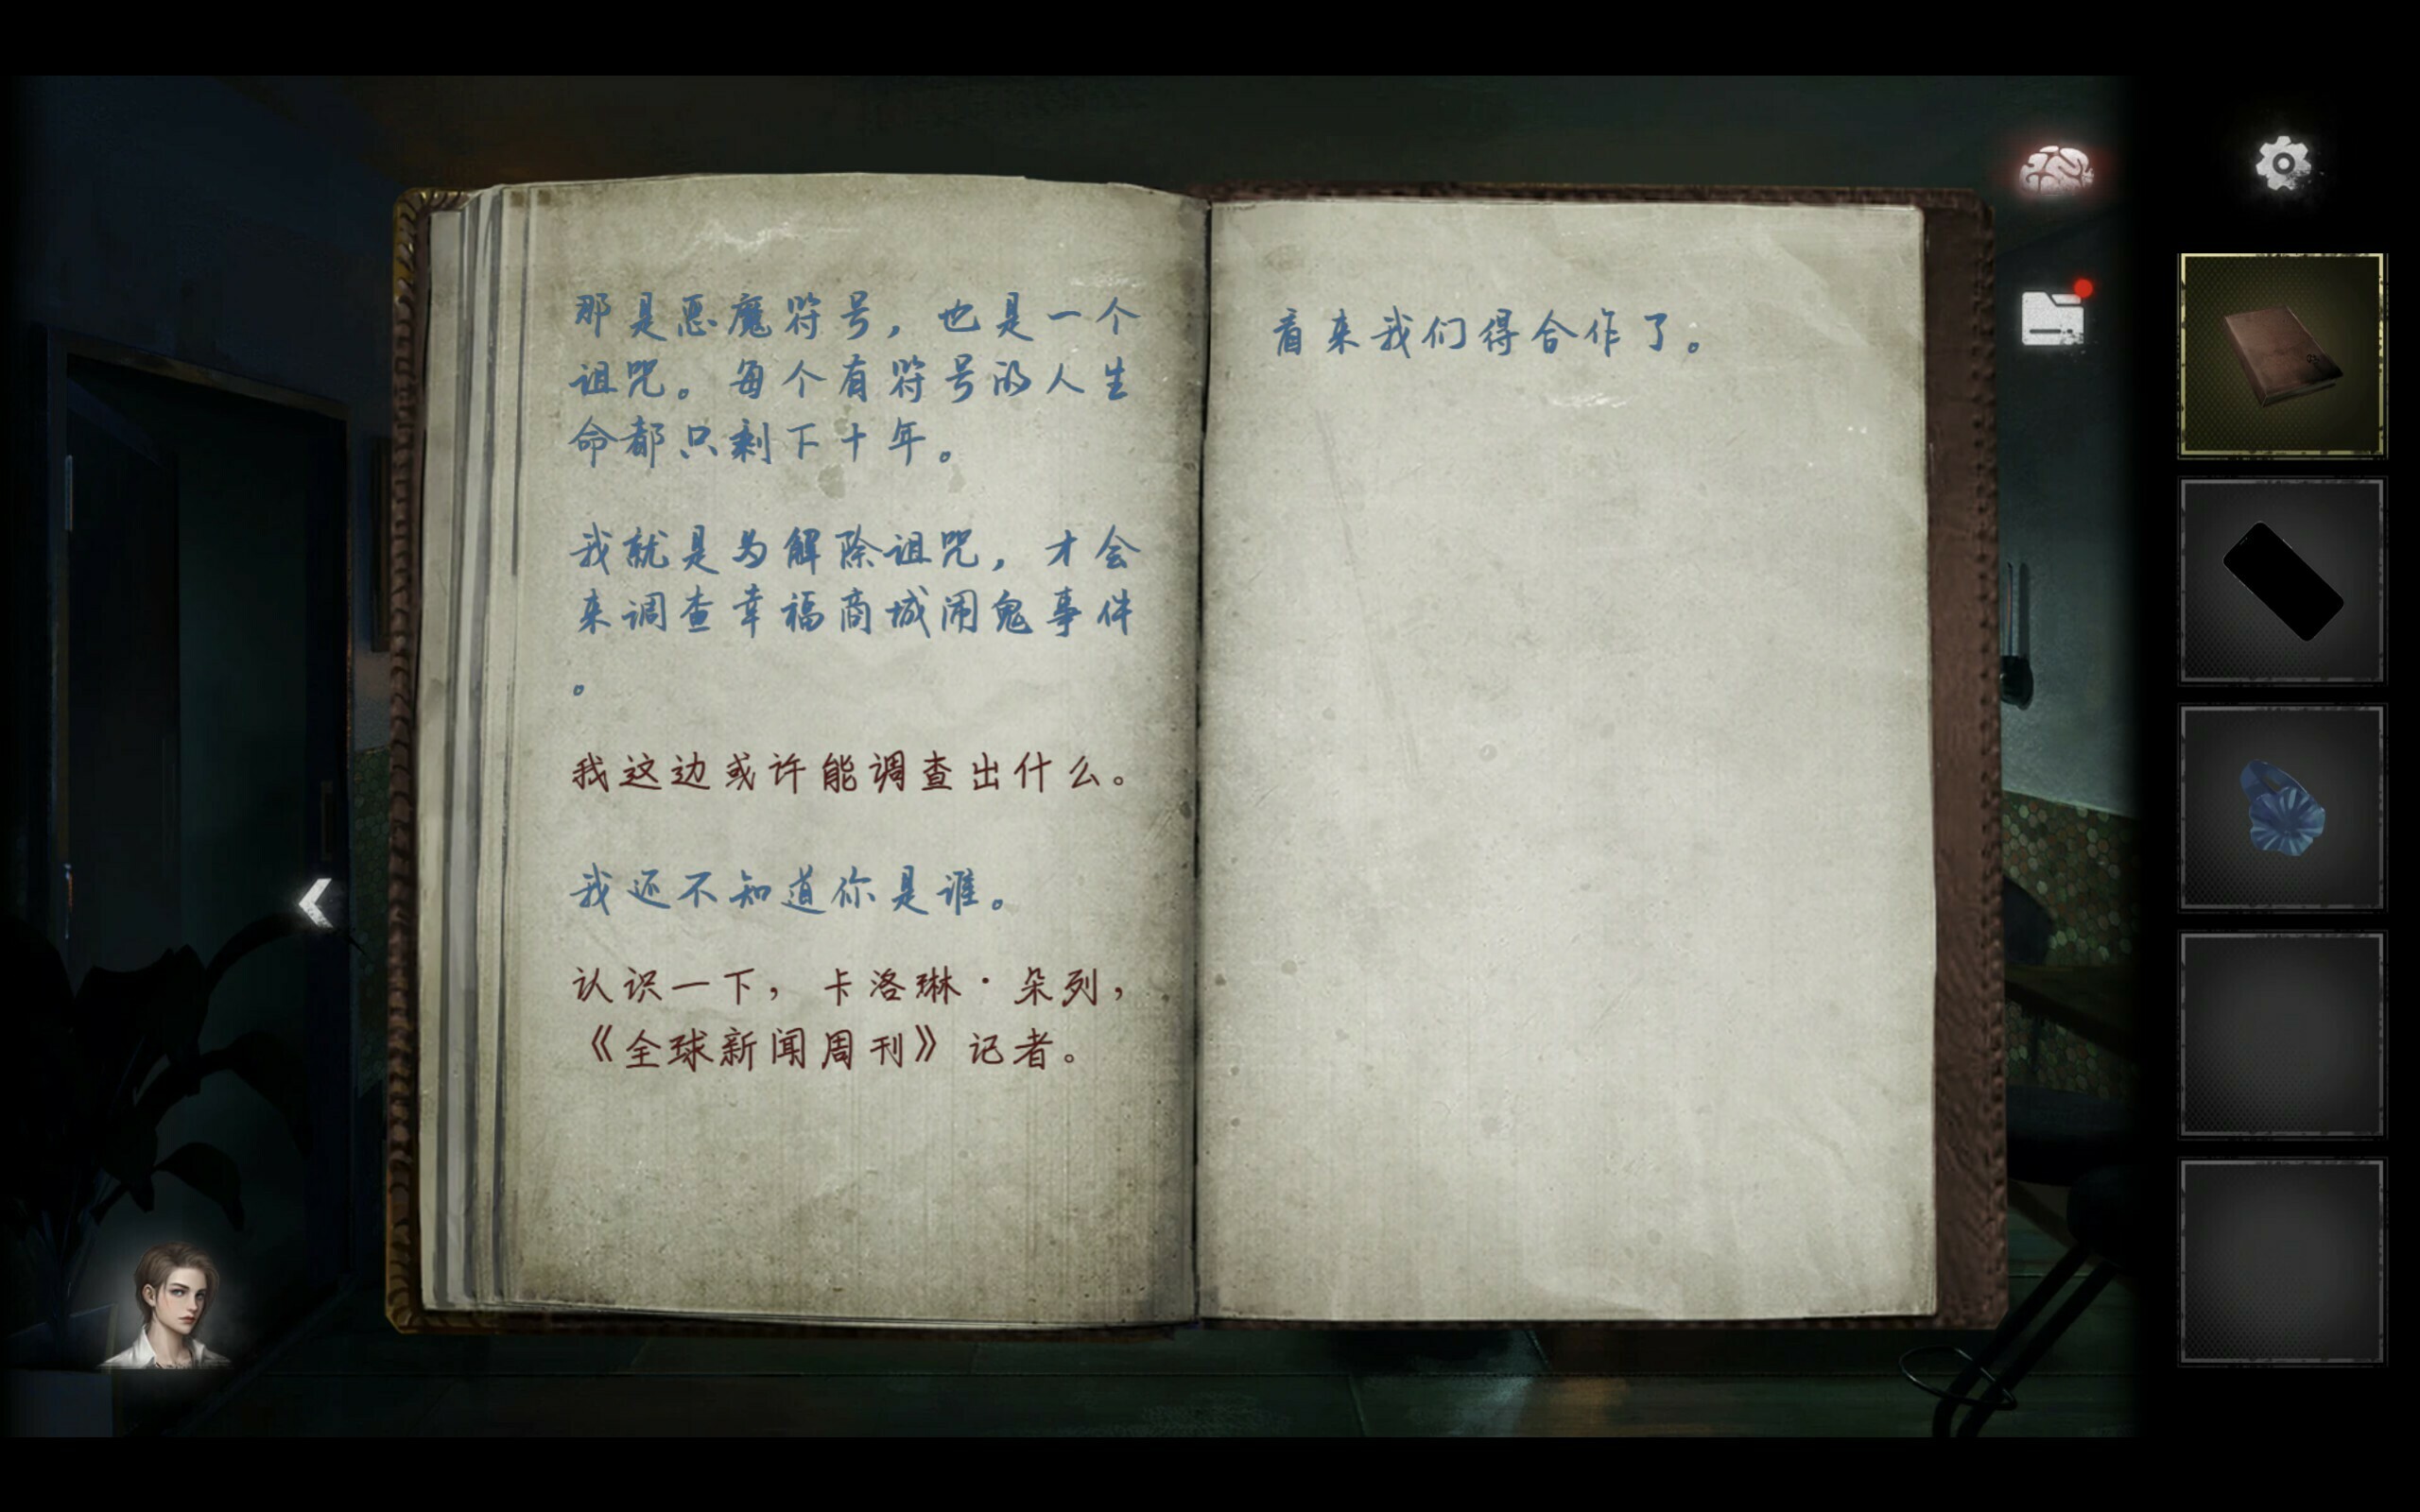 那是恶魔符号，也是一个
诅咒。每个有符号的人生
命都只剩下十年。
我就是为解除诅咒，才会
来调查幸福商城闹鬼事件
。
我这边或许能调查出什么。
我还不知道你是谁。
认识一下，卡洛琳·朵列，
《全球新闻周刊》记者。
看来我们得合作了。